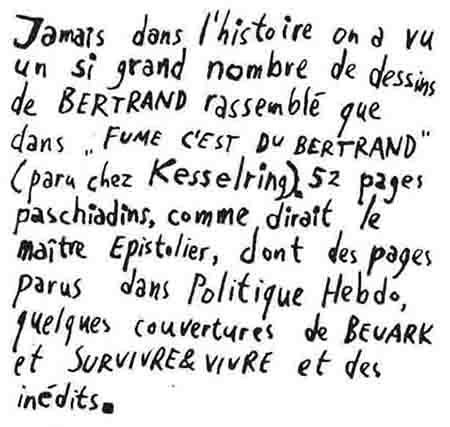 Jamais dans l'histoire on a vu
un si grand nombre de dessins
de BERTRAND rassemblé que
dans „FUME C'EST DU BERTRAND"
(paru chez Kesselring). 52 pages
paschiadins, comme dirait le
maître Epistolier, dont des pages
parus dans Politique Hebdo,
quelques couvertures de BEUARK
et SURVIVRE& VIVRE et des
inédits.